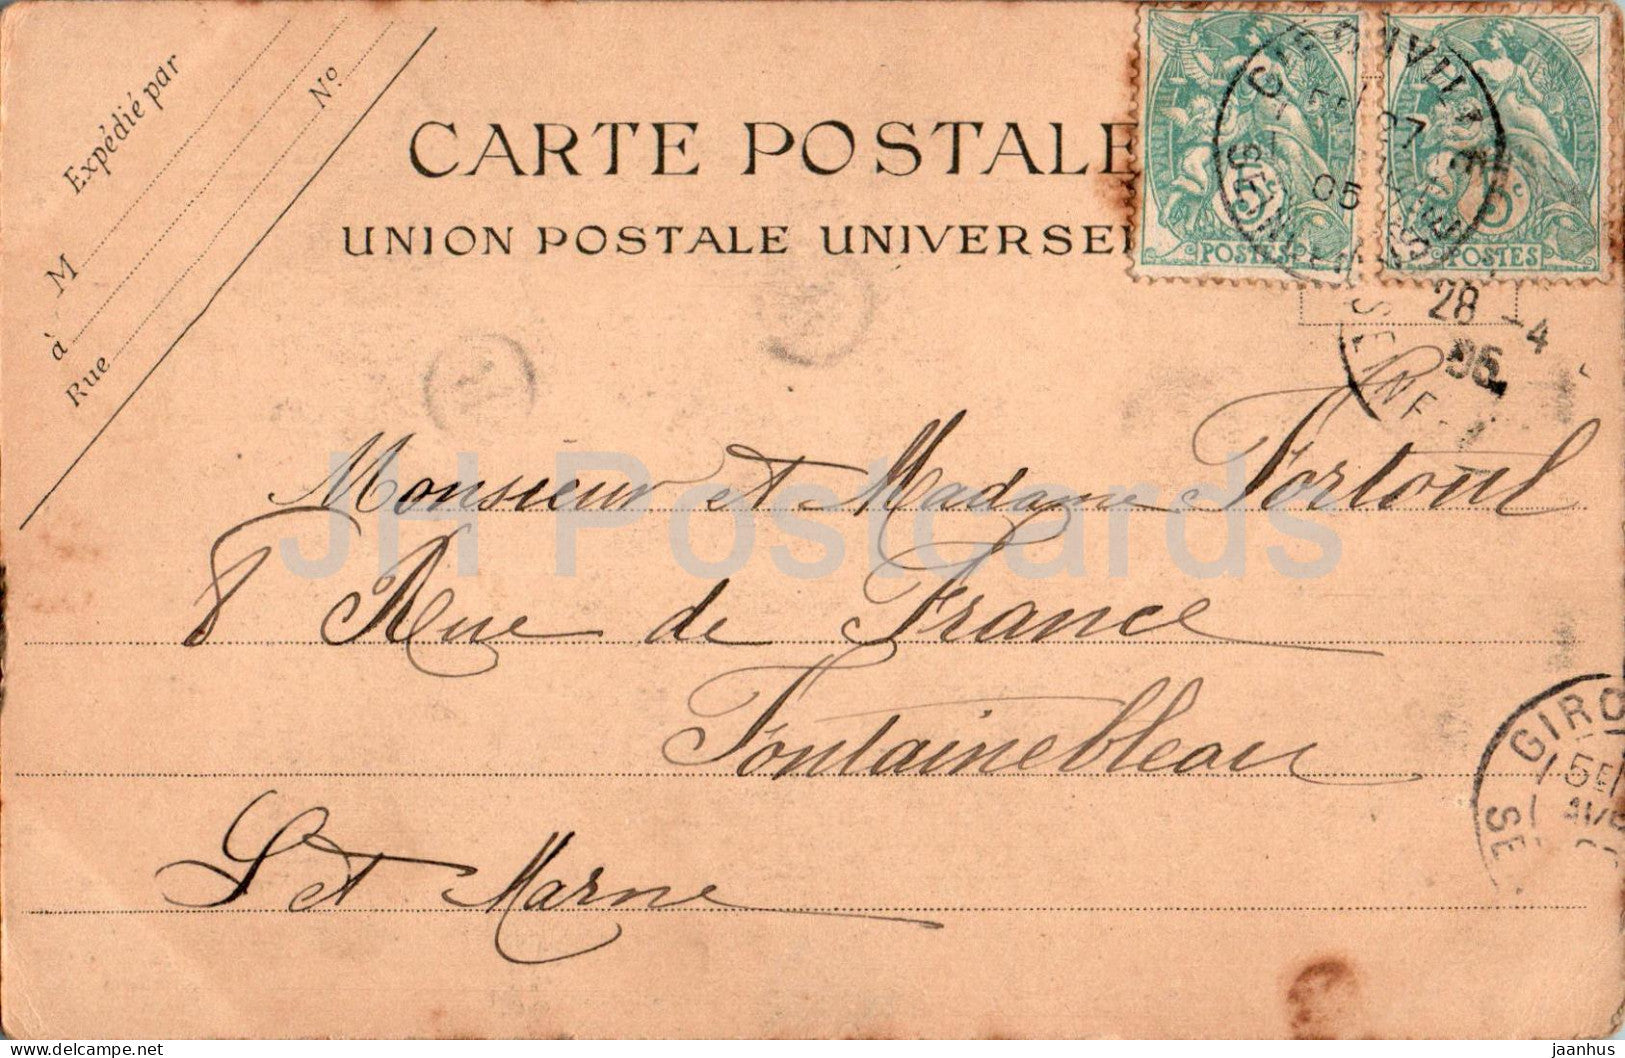 Expédié par
M
à
Rue
No
CARTE POSTALE
UNION POSTALE UNIVERSEL
5c
POSTES
5c
POSTES
05
28 -4
05
SEINE
Monsieur et Madame Fortoul
8 Rue de France
Fontainebleau
S et Marne
GIRO
SE
JH Postcards
delcampe.net
jaanhus